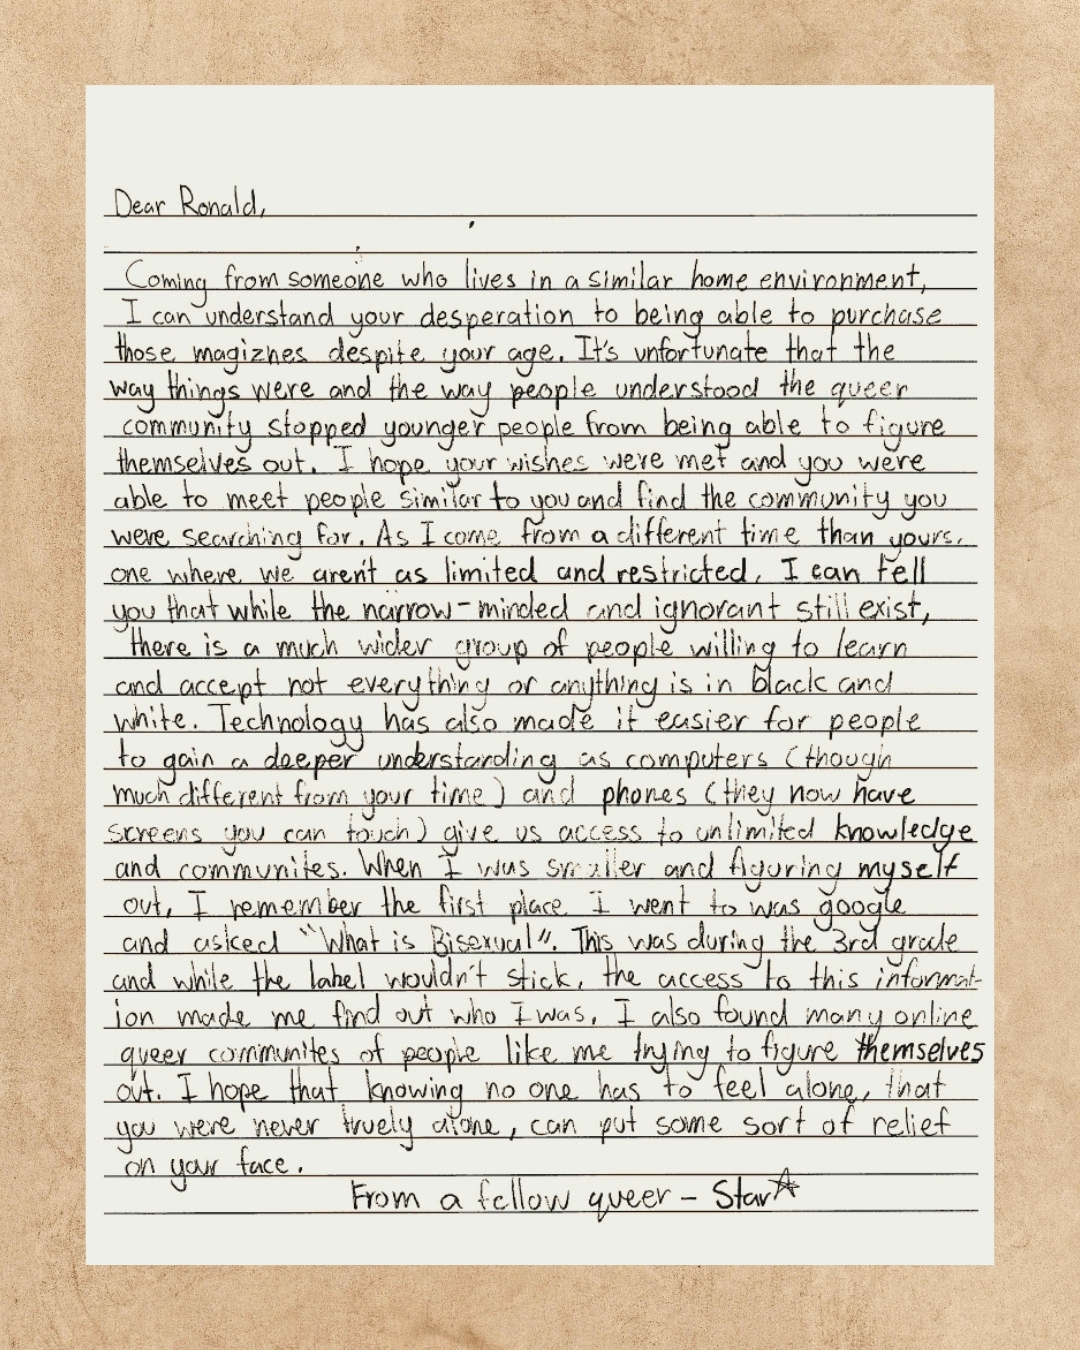 Dear Ronald,
Coming from someone who lives in a similar home environment,
I can understand your desperation to being able to purchase
those magiznes despite your age. It's unfortunate that the
way things were and the way people understood the queer
community stopped younger people from being able to figure
themselves out. I hope your wishes were met and you were
able to meet people similar to you and find the community you
were searching for. As I come from a different time than yours,
one where we aren't as limited and restricted, I can tell
you that while the narrow-minded and ignorant still exist,
there is a much wider group of people willing to learn
and accept not everything or anything is in black and
white. Technology has also made it easier for people
to gain a deeper understanding as computers (though
much different from your time) and phones (they now have
screens you can touch) give us access to unlimited knowledge
and communites. When I was smaller and figuring myself
out, I remember the first place I went to was google
and asked "What is Bisexual". This was during the 3rd grade
and while the label wouldn't stick, the access to this informat-
ion made me find out who I was. I also found many online
queer communites of people like me trying to figure themselves
out. I hope that knowing no one has to feel alone, that
you were never truely alone, can put some sort of relief
on your face.
From a fellow queer - Star☆